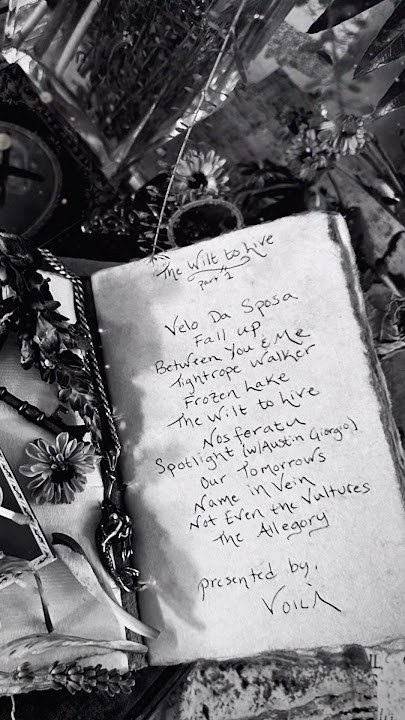 The Wilt to Live
part 1
Velo Da Sposa
Fall up
Between You & Me
Tightrope Walker
Frozen Lake
The Wilt to Live
Nosferatu
Spotlight (w/Austin Giorgio)
Our Tomorrows
Name in Vein
Not Even the Vultures
The Allegory
presented by,
VOILÀ